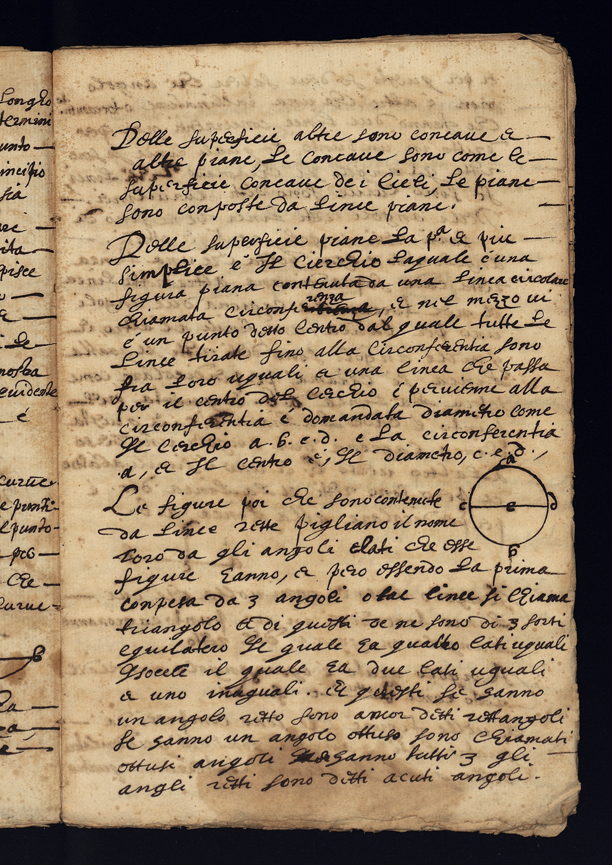 Longho
termini
punto
incipio
sia
ue
vita
apisce
o
e
Le
nostra
evidente
é
curue
e punti
el punto
pro
che
curue
B
la
Delle superficie altre sono concaue e
altre piane, Le concaue sono come le
superficie concaue dei Cieli, Le piane
sono conposte da Linee piane.
Delle superficie piane La p.ª e piu
simplice é Il Cierchio Laquale é una
figura piana contenuta da una Linea circolare
chiamata circonferenza, e nel mezo ui
é un punto detto Centro dal quale tutte Le
Linee tirate fino alla Circonferentia sono
fra Loro uguali e una linea che passa
per il centro del Cerchio é peruienne alla
circonferentia é domandata diametro come
Il Cerchio a. b. c. d. e La circonferentia
.a, e Il centro é, Il diametro, c. e. d.,
a
c e d
b
Le figure poi che sono contenute
da Linee rette pigliano il nome
loro da gli angoli e lati che esse
figure hanno, e pero essendo La prima
conposta da 3 angoli o tre linee si chiama
triangolo et di questi ue ne sono di 3 sorti
equilatero Il quale ha quattro lati uguali
Isocele il quale ha due lati uguali
e uno inuguali. et questi se hanno
un angolo retto sono ancor detti rettangoli
se hanno un angolo ottuso sono chiamati
ottusi angoli hanno tutti 3 gli
angli retti sono detti acuti angoli.